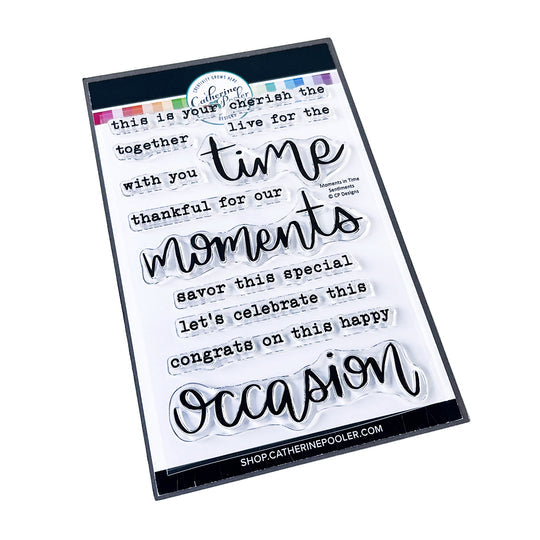 CREATIVITY GROWS HERE
Catherine
Pooler
DESIGNS
this is your
cherish the
together
live for the
time
with you
Moments in Time
Sentiments
© CP Designs
thankful for our
moments
savor this special
let's celebrate this
congrats on this happy
occasion
SHOP.CATHERINEPOOLER.COM